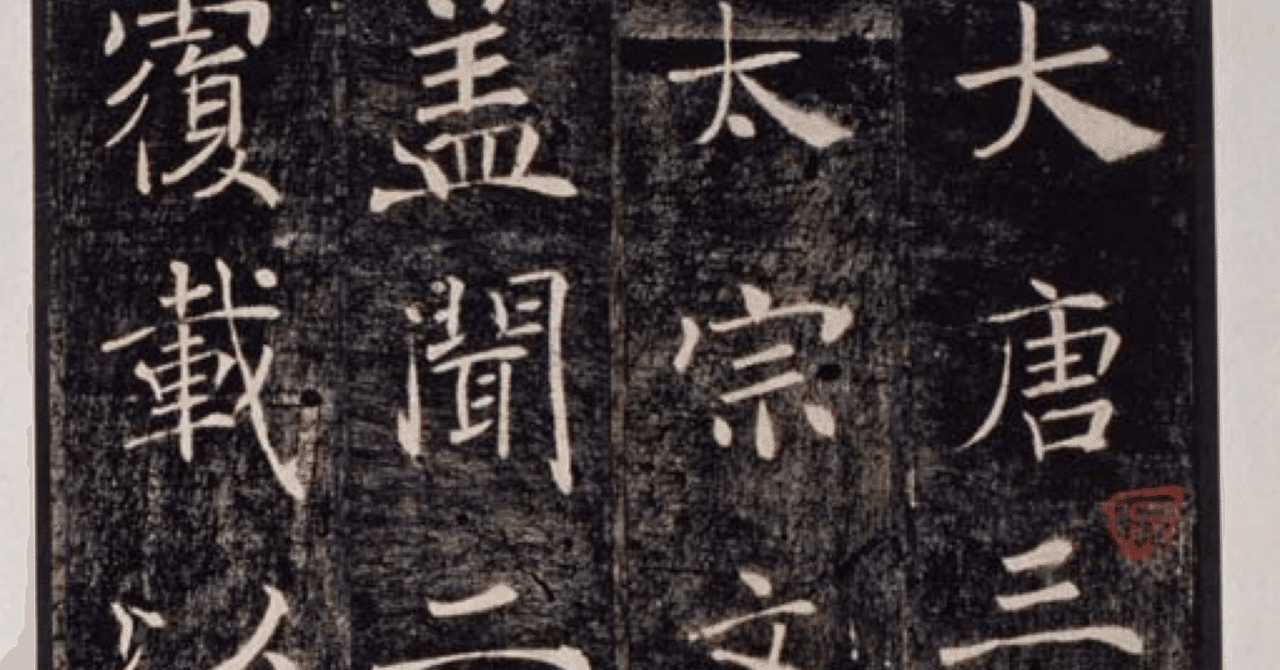 大唐三
太宗文
盖聞二
覆載以